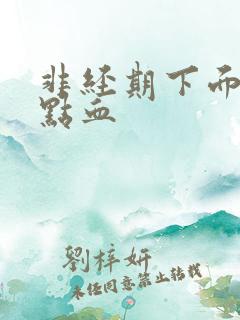 非經期下面
點血
劉梓妍
未经同意禁止转载